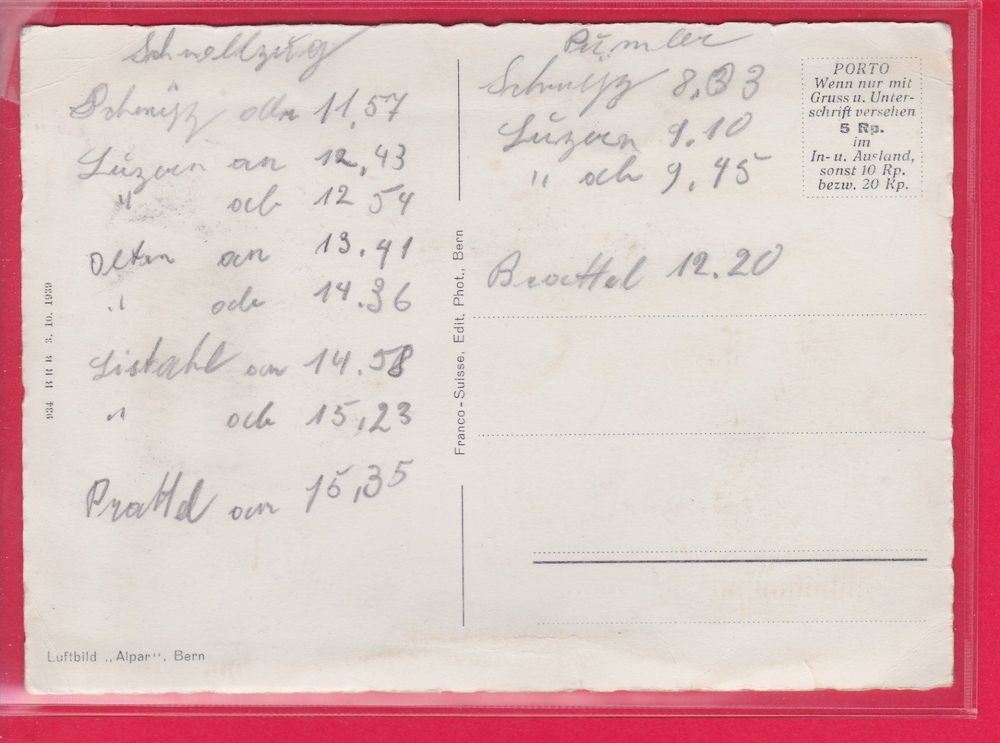 Schnellzug
Schwyz 11,57
Luzern an 12,43
" ab 12 54
Olten an 13.41
" ab 14.36
Listahl an 14.58
" ab 15,23
Prattel an 15,35
Schwyz 8.33
Luzern 9.10
" ab 9,45
Brattel 12.20
PORTO
Wenn nur mit
Gruss u. Unter-
schrift versehen
5 Rp.
im
In- u. Ausland,
sonst 10 Rp.
bezw. 20 Rp.
934 B R B 3. 10. 1939
Franco-Suisse, Edit, Phot., Bern
Luftbild „Alpar", Bern